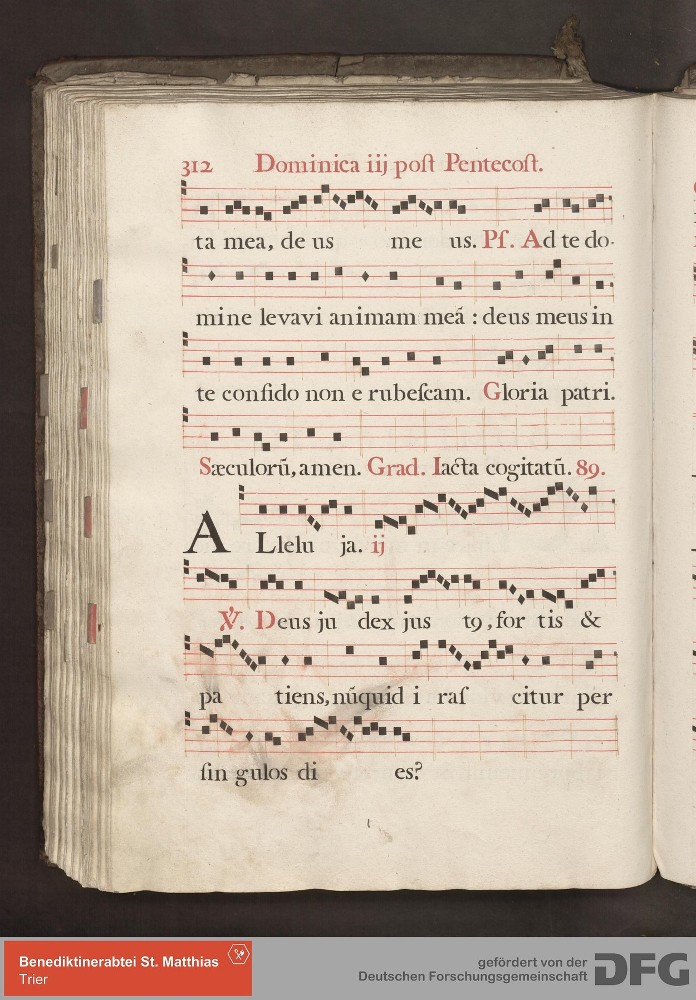 312 Dominica iij poſt Pentecoſt.
ta mea, de us me us. Pſ. Ad te do-
mine levavi animam meã : deus meus in
te confido non e rubeſcam. Gloria patri.
Sæculorũ, amen. Grad. Iacta cogitatũ. 89.
A Llelu ja. ij
℣. Deus ju dex jus tꝰ, for tis &
pa tiens, nũquid i raſ citur per
ſin gulos di es?
Benediktinerabtei St. Matthias
Trier
gefördert von der
Deutschen Forschungsgemeinschaft
DFG